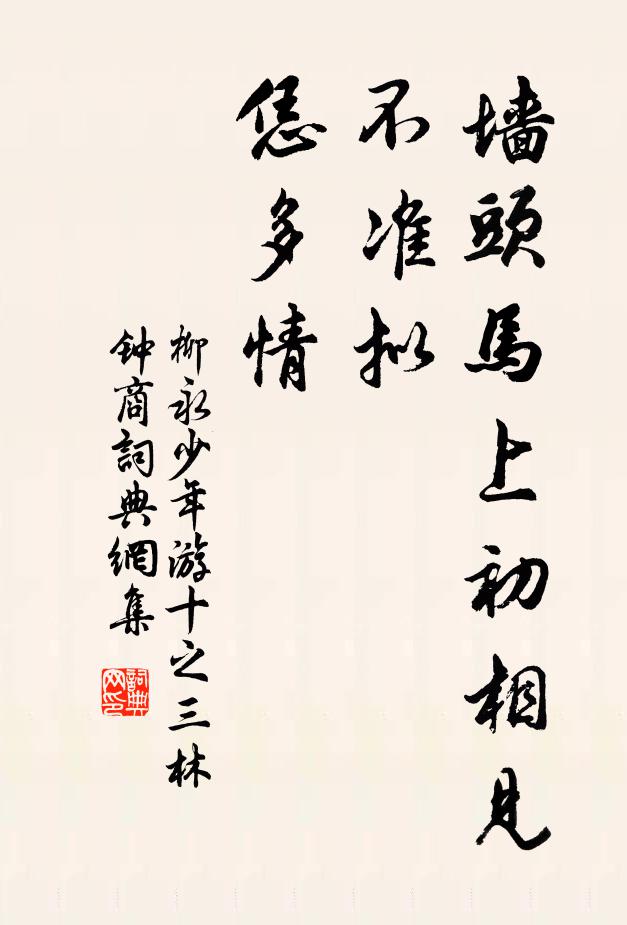 墙頭馬上初相見
不准拟
恁多情
柳永少年游十之三林
钟商詞典網集
詞典网印